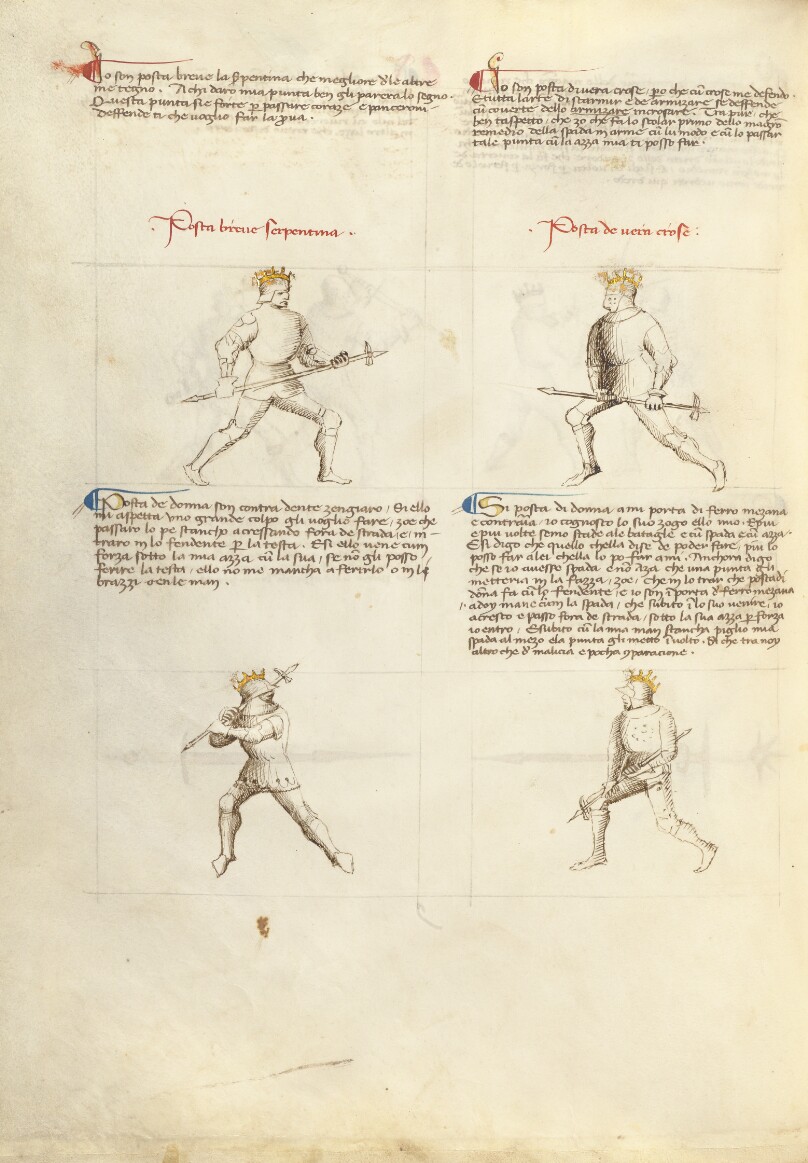 Io son posta breve la serpentina che megliore d'le altre
me tegno. A chi daro mia punta ben gli parerà lo segno.
Questa punta si e forte p passare coraze e panceroni
deffende ti che voglio far la pva.
Posta breve serpentina.
Io son posta di vera crose, po che cu crose me defendo.
E tutta larte di scarmir e de armizare se deffende
cu coverte dello armizare incrosare. Tra pur, che
ben taspetto, che zo che fa lo scolar primo dello magro
remedio della spada in arme cu lu modo e cu lo passar
tale punta cu la azza mia ti posso far.
Posta de vera crose:
Posta de donna son contra dente zengiaro, Si ello
mi aspetta uno grande colpo gli voglio fare, zoe che
passaro lo pe stancho acressando fora de strada, e in
traro in lo fendente p la testa. E si ello vene cum
forza sotto la mia azza cu la sua, se no gli posso
ferire la testa, ello no me mancha a ferirlo o in li
brazzi o en le man.
Si posta di donna a mi porta di ferro mezana
e contraria, io cognosco lo suo zogo e lo mio. E piu
e piu volte semo stade ale bataglie e cu spada e cu azza.
E si digo che quello chella dise de poder fare, piu lo
posso far a lei chella lo po far a mi. Anchora digo
che se io avesse spada e no azza che una punta gli
metteria in la fazza, zoe, che in lo trar che posta di
dona fa cu lo fendente, e io son i porta d' ferro mezana
a doy mane cum la spada, che subito i lo suo venire, io
acresco e passo fora de strada, sotto la sua azza p forza
io entro, E subito cu la mia man stancha piglio mia
spada al mezo e la punta gli metto i volto. Si che tra noy
altro che d' malicia e pocha gparacione.